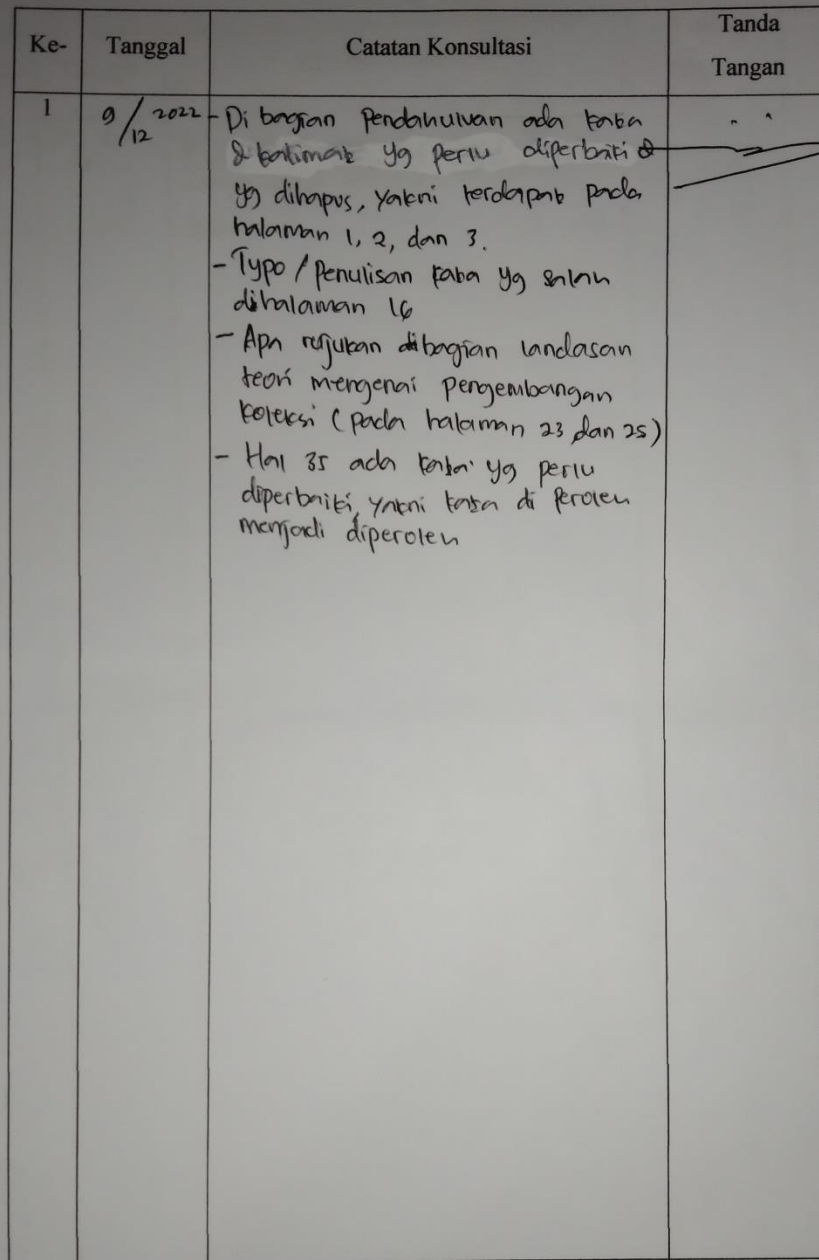 Ke-
Tanggal
Catatan Konsultasi
Tanda
Tangan
1
9/12 2022
- Di bagian Pendahuluan ada kata
& kalimat yg perlu diperbaiki &
yg dihapus, yakni terdapat pada
halaman 1, 2, dan 3.
- Typo / Penulisan kata yg salah
dihalaman 16
- Apa rujukan dibagian landasan
teori mengenai pengembangan
koleksi (pada halaman 23 dan 25)
- Hal 35 ada kata yg perlu
diperbaiki, yakni kata di peroleh
menjadi diperoleh